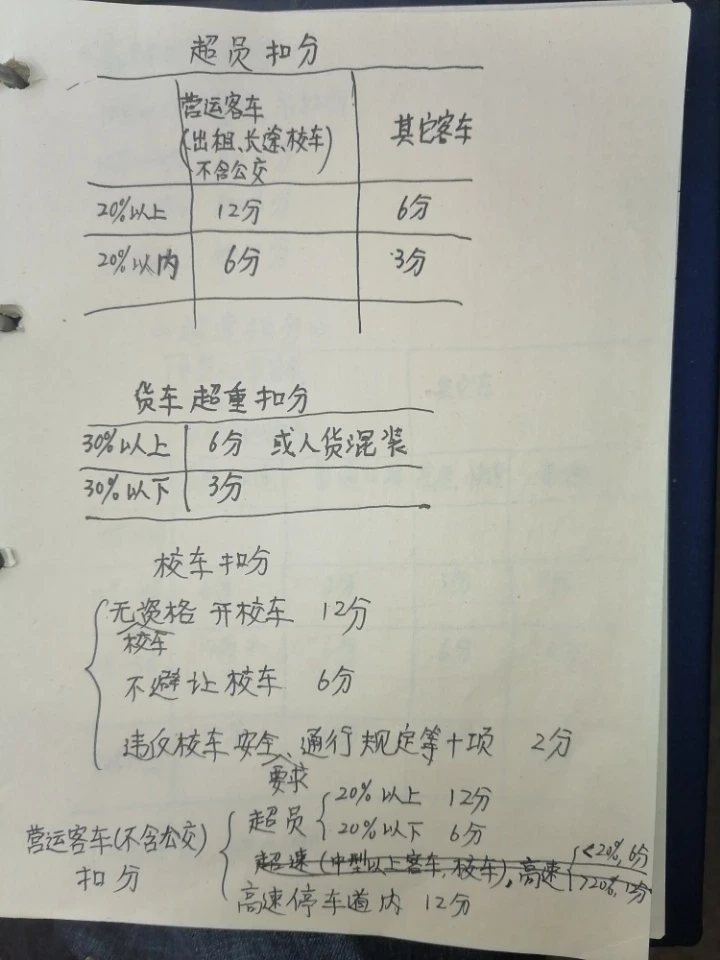 超员扣分
营运客车
(出租、长途、校车)
不含公交
其它客车
20%以上 12分 6分
20%以内 6分 3分
货车超重扣分
30%以上 6分 或人货混装
30%以下 3分
校车扣分
无资格开校车 12分
校车
不避让校车 6分
违反校车安全、通行规定等十项 2分
要求
营运客车(不含公交)
扣分
超员
20%以上 12分
20%以下 6分
超速(中型以上客车,校车),高速
<20%, 6分
>20%, 12分
高速停车道内 12分